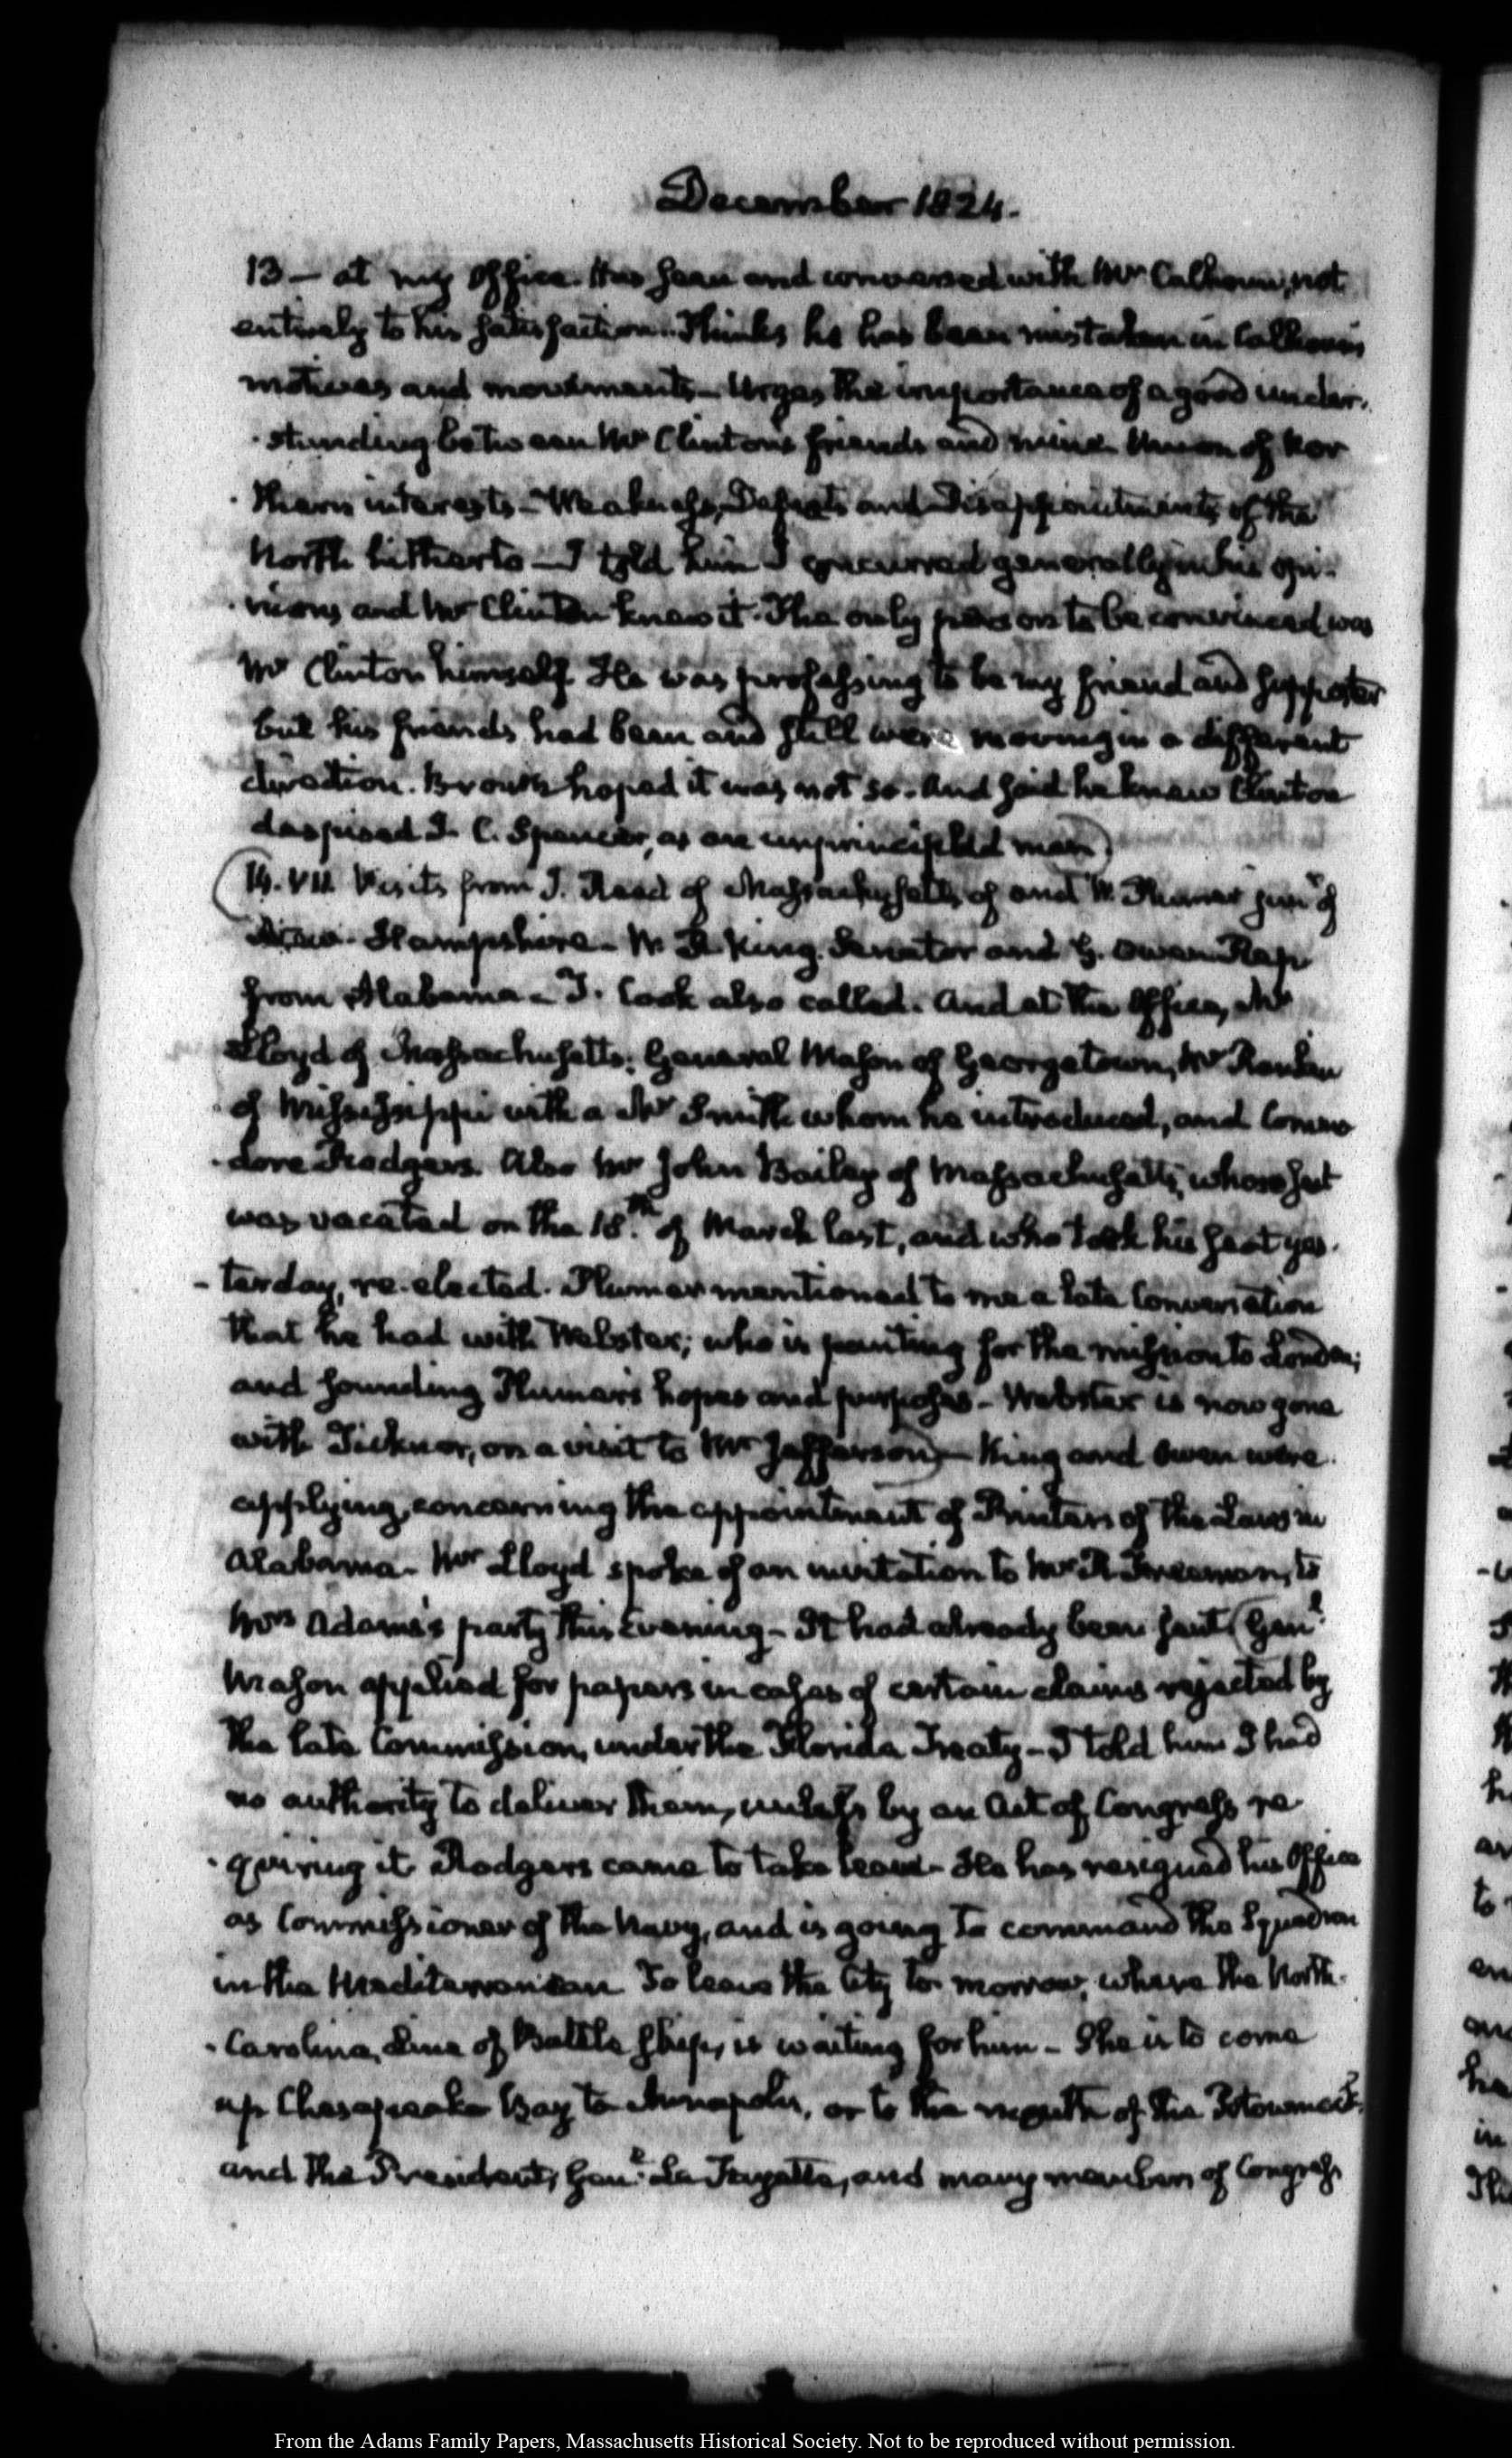 December 1824.
13 — at my Office. Has seen and conversed with Mr Calhoun, not
entirely to his satisfaction. Thinks he has been mistaken in Calhoun's
motives and movements — Urges the importance of a good under-
-standing between Mr Clinton's friends and mine. Union of Nor
-thern interests — Weakness, Defeats and Disappointments of the
North hitherto — I told him I concurred generally in his opi-
-nions and Mr Clinton knew it. The only person to be convinced was
Mr Clinton himself. He was professing to be my friend and supporter
but his friends had been and still were moving in a different
direction. Brown hoped it was not so. And said he knew Clinton
despised J. C. Spencer, as an unprincipled man)
(14. VII. Visits from J. Reed of Massachusetts, of and W. Plumer junr of
New-Hampshire — W. R King. Senator and G. Owen Rep
from Alabama — D. Cook also called. And at the Office, Mr
Lloyd of Massachusetts. General Mason of Georgetown, Mr Rankin
of Mississippi with a Mr Smith whom he introduced, and Commo
-dore Rodgers. Also Mr John Bailey of Massachusetts, whose seat
was vacated on the 18th of March last, and who took his seat yes-
-terday, re-elected. Plumer mentioned to me a late Conversation
that he had with Webster; who is panting for the mission to London;
and sounding Plumer's hopes and purposes — Webster is now gone
with Ticknor, on a visit to Mr Jefferson) — King and Owen were
applying, concerning the appointment of Printers of the Laws in
Alabama — Mr Lloyd spoke of an invitation to Mr R Freeman, to
Mrs Adams's party this Evening — It had already been sent (Genl
Mason applied for papers in cases of certain claims rejected by
the late Commission, under the Florida Treaty — I told him I had
no authority to deliver them, unless by an Act of Congress re-
-quiring it. Rodgers came to take leave — He has resigned his Office
as Commissioner of the Navy, and is going to command the Squadron
in the Mediterranean To leave the City to-morrow, where the North-
-Carolina, Line of Battle Ship, is waiting for him — She is to come
up Chesapeake Bay to Annapolis, or to the mouth of the Potowmack,
and the President, Genl La Fayette, and many members of Congress
From the Adams Family Papers, Massachusetts Historical Society. Not to be reproduced without permission.